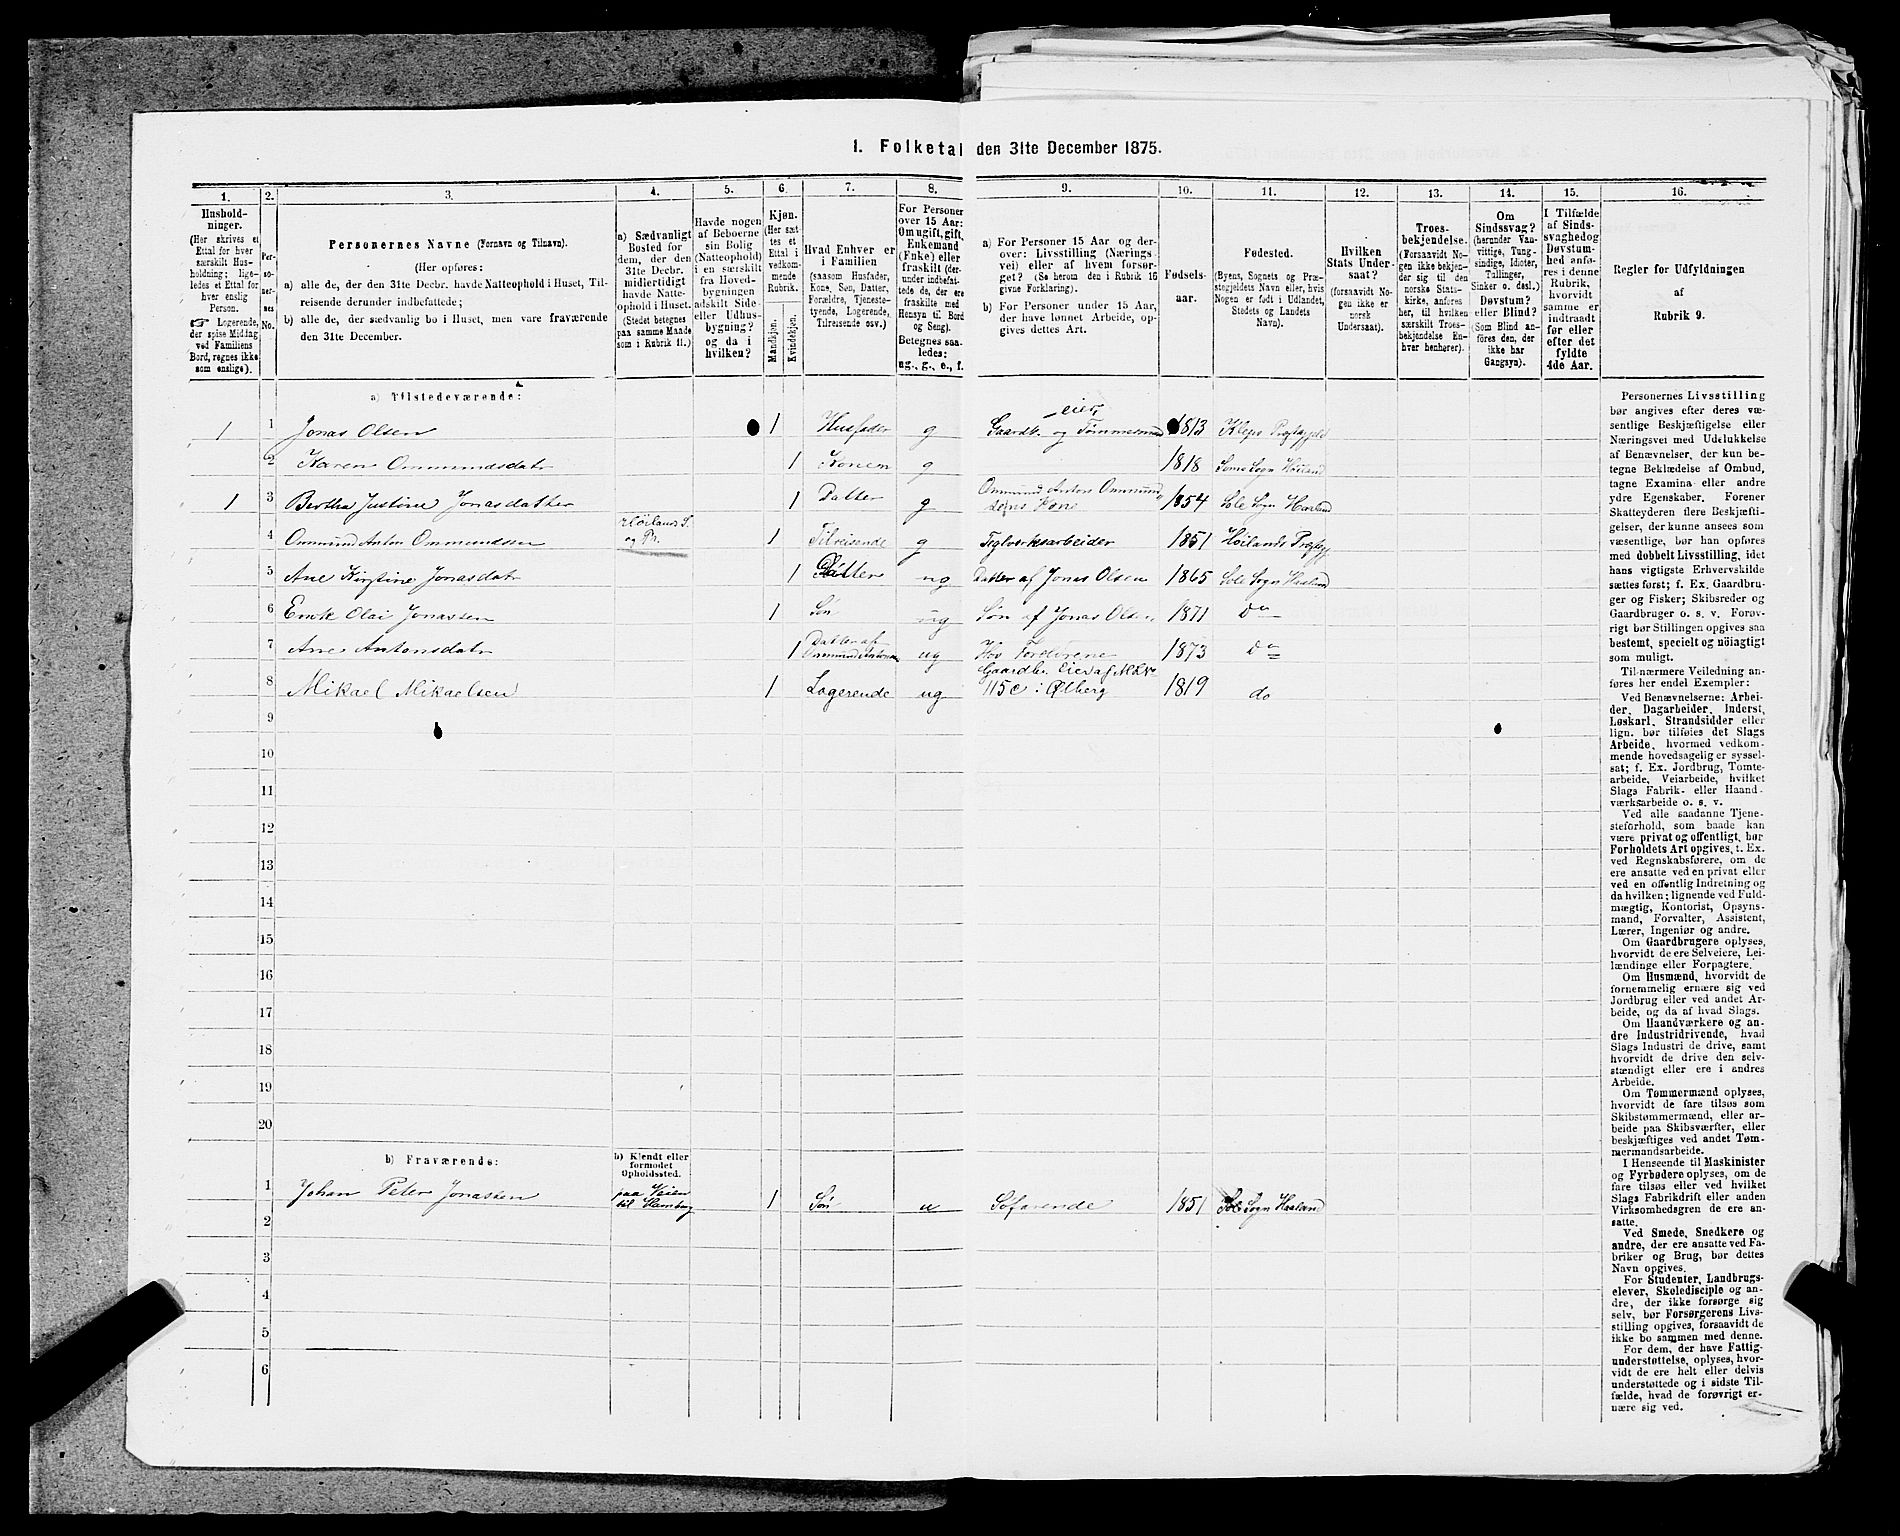 1. Folketal den 31te December 1875.
1. 2. 3. 4. 5. 6. 7. 8. 9. 10. 11. 12. 13. 14. 15. 16.
Hushold-
ninger.
(Her skrives et
Ettal for hver
særskilt Hus-
holdning; lige-
ledes et Ettal for
hver enslig
Person.
☞ Logerende,
der spise Middag
ved Familiens
Bord, regnes ikke
som enslige).
Per-
so-
ner-
nes
No.
Personernes Navne (Fornavn og Tilnavn).
(Her opføres:
a) alle de, der den 31te Decbr. havde Natteophold i Huset, Til-
reisende derunder indbefattede;
b) alle de, der sædvanlig bo i Huset, men vare fraværende
den 31te December.
a) Sædvanligt
Bosted for
dem, der den
31te Decbr.
midlertidigt
havde Natte-
ophold i Huset.
(Stedet betegnes
paa samme Maade
som i Rubrik 11.)
Havde nogen
af Beboerne
sin Bolig
(Natteophold)
i en særskilt
fra Hoved-
bygningen
adskilt Side-
eller Udhus-
bygning?
og da i
hvilken?
Kjøn.
(Her sæt-
tes et
Ettal i
vedkom-
mende
Rubrik.
Mandkjøn.
Kvindekjøn.
Hvad Enhver er
i Familien
(saasom Husfader,
Kone, Søn, Datter,
Forældre, Tjeneste-
tyende, Logerende,
Tilreisende osv.)
For Personer
over 15 Aar:
Om ugift, gift,
Enkemand
(Enke) eller
fraskilt (der-
under indbefat-
tede de, der ere
fraskilte med
Hensyn til Bord
og Seng).
Betegnes saa-
ledes:
ug., g., e., f.
a) For Personer 15 Aar og der-
over: Livsstilling (Nærings-
vei) eller af hvem forsør-
get? (Se herom den i Rubrik 16
givne Forklaring).
b) For Personer under 15 Aar,
der have lønnet Arbeide, op-
gives dettes Art.
Fødsels-
aar.
Fødested.
(Byens, Sognets og Præ-
stegjeldets Navn eller, hvis
Nogen er født i Udlandet,
Stedets og Landets
Navn).
Hvilken
Stats Under-
saat?
(forsaavidt No-
gen ikke er
norsk
Undersaat).
Troes-
bekjendelse.
(Forsaavidt No-
gen ikke bekjen-
der sig til den
norske Stats-
kirke, anføres
her, til hvilken
særskilt Troes-
bekjendelse En-
hver henhører).
Om
Sindssvag?
(herunder Van-
vittige, Tung-
sindige, Idioter,
Tullinger,
Sinker o. desl.)
Døvstum?
eller Blind?
(Som Blind an-
føres den, der
ikke har
Gangsyn).
I Tilfælde
af Sinds-
svaghed og
Døvstum-
hed anfø-
res i denne
Rubrik,
hvorvidt
samme er
indtraadt
før eller
efter det
fyldte
4de Aar.
Regler for Udfyldningen
af
Rubrik 9.
a) Tilstedeværende:
1 1 Jonas Olsen 1 Husfader g Gaardb. -eier, og Tømmermand 1813 Klep Præstegjeld
2 Karen Ommundsdatr 1 Konen g 1818 Soma Sogn Høiland
1 3 Bertha Justine Jonasdatter 1 Datter g Ommund Anton Ommund- sens Kone 1854 Sole Sogn Haaland
4 Ommund Anton Ommundsen Høilands S. og Pr. 1 Tilreisende g Teglverksarbeider 1851 Høilands Præstegj
5 Ane Kirstine Jonasdatr 1 Datter ug Datter af Jonas Olsen 1865 Sole Sogn Haaland
6 Enok Olai Jonassen 1 Søn ug Søn af Jonas Olsen 1871 Do
7 Ane Antonsdatr 1 Datter af Ommund Anton ug Hos Forældrene 1873 Do
8 Mikael Mikaelsen 1 Logerende ug Gaardbr. Eier af M.L.No 115c i Ølberg 1819 do
9
10
11
12
13
14
15
16
17
18
19
20
b) Fraværende:
b) Kjendt eller
formodet
Opholdssted.
1 Johan Peter Jonassen paa Veien til Hamburg 1 Søn u Søfarende 1851 Sole Sogn Haaland
2
3
4
5
6
Personernes Livsstilling
bør angives efter deres væ-
sentlige Beskjæftigelse eller
Næringsvei med Udelukkelse
af Benævnelser, der kun be-
tegne Beklædelse af Ombud,
tagne Examina eller andre
ydre Egenskaber. Forener
Skatteyderen flere Beskjæfti-
gelser, der kunne ansees som
væsentlige, bør han opføres
med dobbelt Livsstilling, idet
hans vigtigste Erhvervskilde
sættes først; f. Ex. Gaardbru-
ger og Fisker; Skibsreder og
Gaardbruger o. s. v. Forøv-
rigt bør Stillingen opgives saa
bestemt, specielt og nöiagtigt
som muligt.
Til nærmere Veiledning an-
føres her endel Exempler:
Ved Benævnelserne: Arbei-
der, Dagarbeider, Inderst,
Løskarl, Strandsidder eller
lign. bør tilføies det Slags
Arbeide, hvormed vedkom-
mende hovedsagelig er syssel-
sat; f. Ex. Jordbrug, Tomte-
arbeide, Veiarbeide, hvilket
Slags Fabrik- eller Haand-
værksarbeide o. s. v.
Ved alle saadanne Tjene-
steforhold, som baade kan
være privat og offentligt, bør
Forholdets Art opgives, t. Ex.
ved Regnskabsførere, om de
ere ansatte ved en privat eller
ved en offentlig Indretning og
da hvilken; lignende ved Fuld-
mægtig, Kontorist, Opsyns-
mand, Forvalter, Assistent,
Lærer, Ingeniør og andre.
Om Gaardbrugere oplyses,
hvorvidt de ere Selveiere, Lei-
lændinge eller Forpagtere.
Om Husmænd, hvorvidt de
fornemmelig ernære sig ved
Jordbrug eller ved andet Ar-
beide, og da af hvad Slags.
Om Haandværkere og an-
dre Industridrivende, hvad
Slags Industri de drive, samt
hvorvidt de drive den selv-
stændigt eller ere i andres
Arbeide.
Om Tømmermænd oplyses,
hvorvidt de fare tilsøs som
Skibstømmermænd, eller ar-
beide paa Skibsværfter, eller
beskjæftiges ved andet Tøm-
mermandsarbeide.
I Henseende til Maskinister
og Fyrbødere oplyses, om de
fare tilsøs eller ved hvilket
Slags Fabrikdrift eller anden
Virksomhedsgren de ere an-
satte.
Ved Smede, Snedkere og
andre, der ere ansatte ved Fa-
briker og Brug, bør dettes
Navn opgives.
For Studenter, Landbrugs-
elever, Skoledisciple og an-
dre, der ikke forsørge sig
selv, bør Forsørgerens Livs-
stilling opgives, forsaavidt de
ikke bo sammen med denne.
For dem, der have Fattig-
understøttelse, oplyses, hvor-
vidt de ere helt eller delvis
understøttede og i sidste Til-
fælde, hvad de forøvrigt er-
nære sig ved.